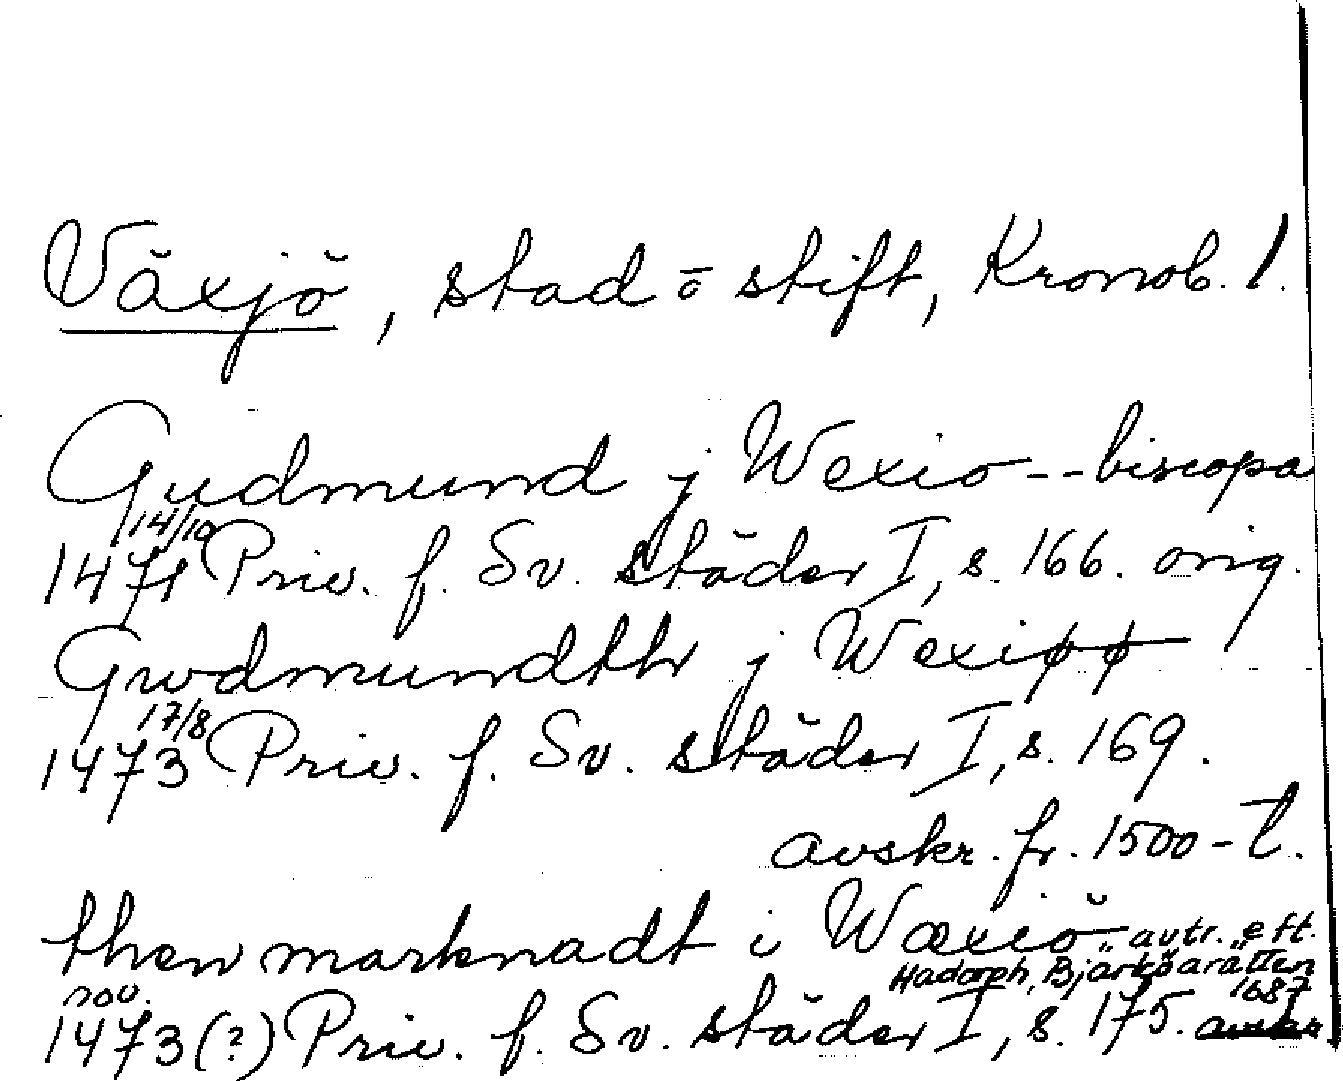 Växjö, stad o stift, Kronob. l.
Gudmund j Wexio -- biscopa
14/10
1471 Priv. f. Sv. städer I, s. 166. orig.
Gwdmundth j Wexiøø
17/8
1473 Priv. f. Sv. städer I, s. 169.
avskr. fr. 1500-t.
then marknadt i Wæxiö avtr. eft.
Hadorph, Bjärköarätten
nov. 1687
1473(?) Priv. f. Sv. städer I, s. 175.